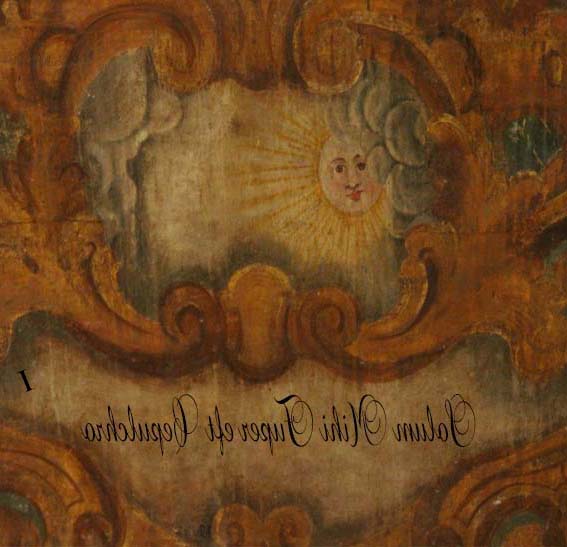 I
Solum Mihi Super eſt Sepulchro